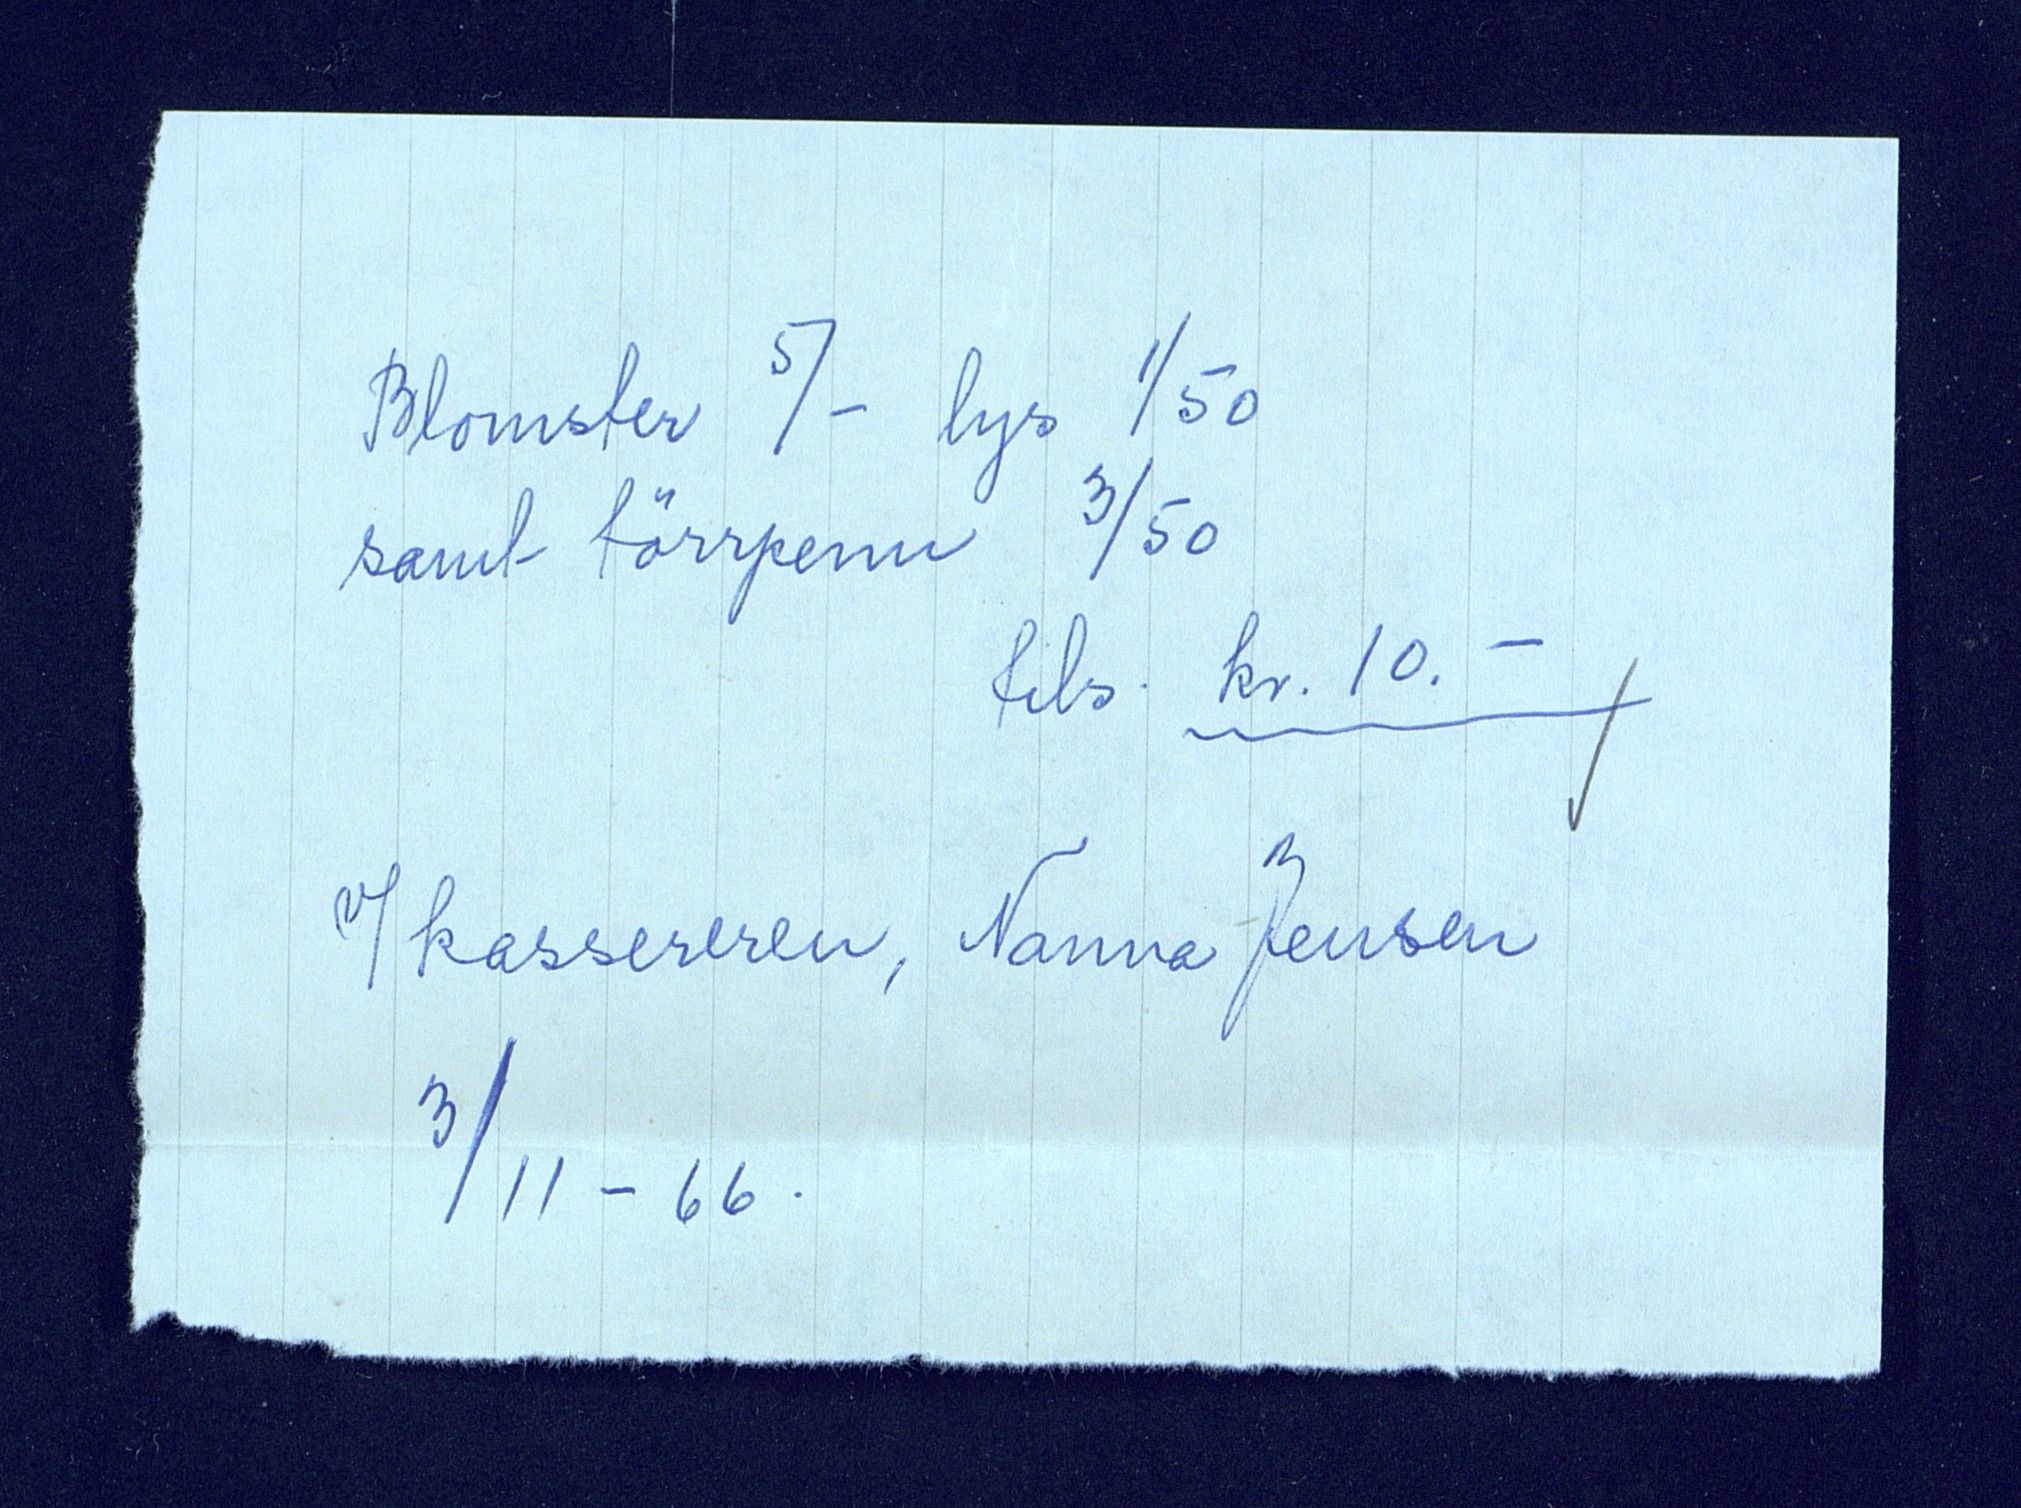 Blomster 5/- lys 1/50
samt törrpenn 3/50
tils. kr. 10.-
v/ kassereren, Nanna Jensen
3/11-66.